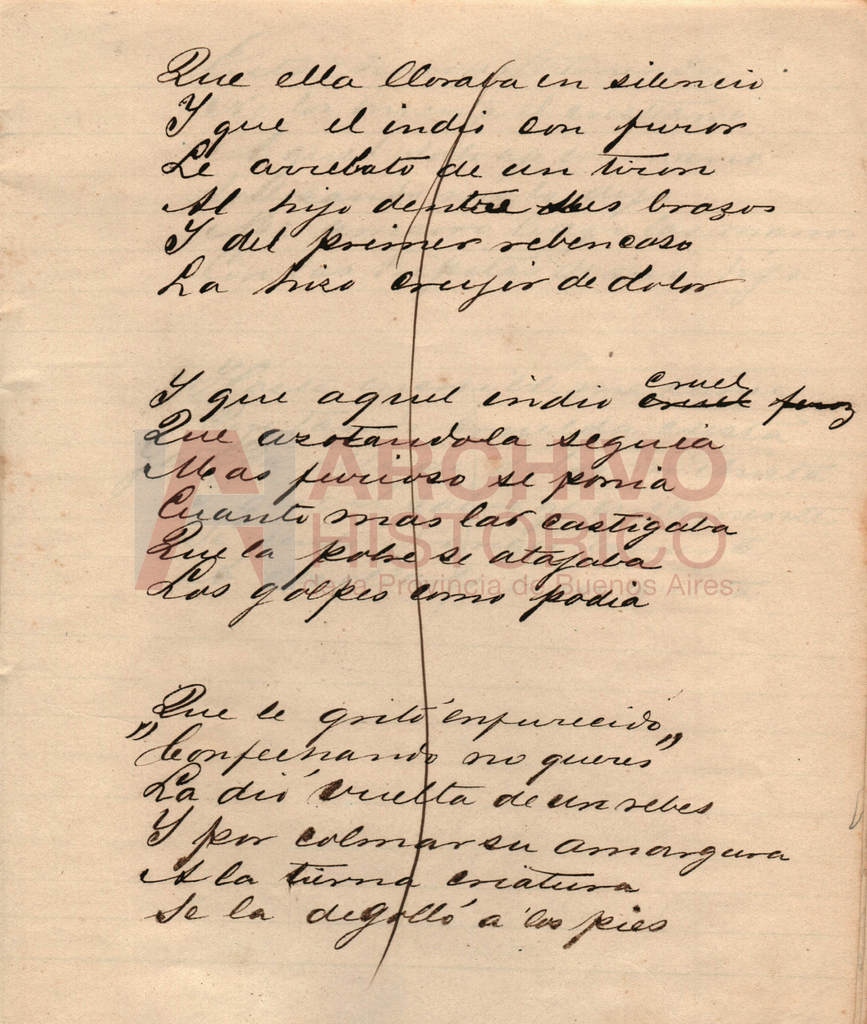 Que ella lloraba en silencio
Y que el indio con furor
Le arrebato de un tiron
Al hijo dentre sus brazos
Y del primer rebencaso
La hizo crujir de dolor
Y que aquel indio cruel cruel feroz
Que azotandola seguia
Mas furioso se ponia
Cuanto mas las castigaba
Que la pobre se atajaba
Los golpes como podia
ARCHIVO
HISTÓRICO
de la Provincia de Buenos Aires
Que le gritó enfurecido
"Confechando no queres"
La dió vuelta de un rebes
Y por colmar su amargura
A la tierna criatura
Se la degolló a los pies